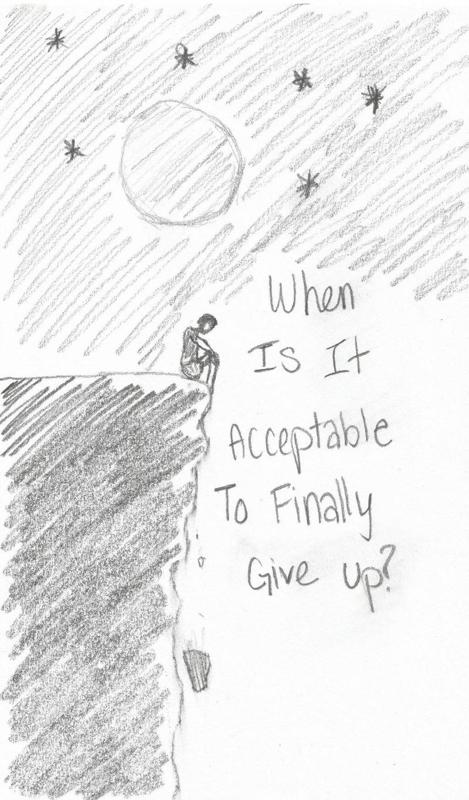 When
Is It
Acceptable
To Finally
Give up?